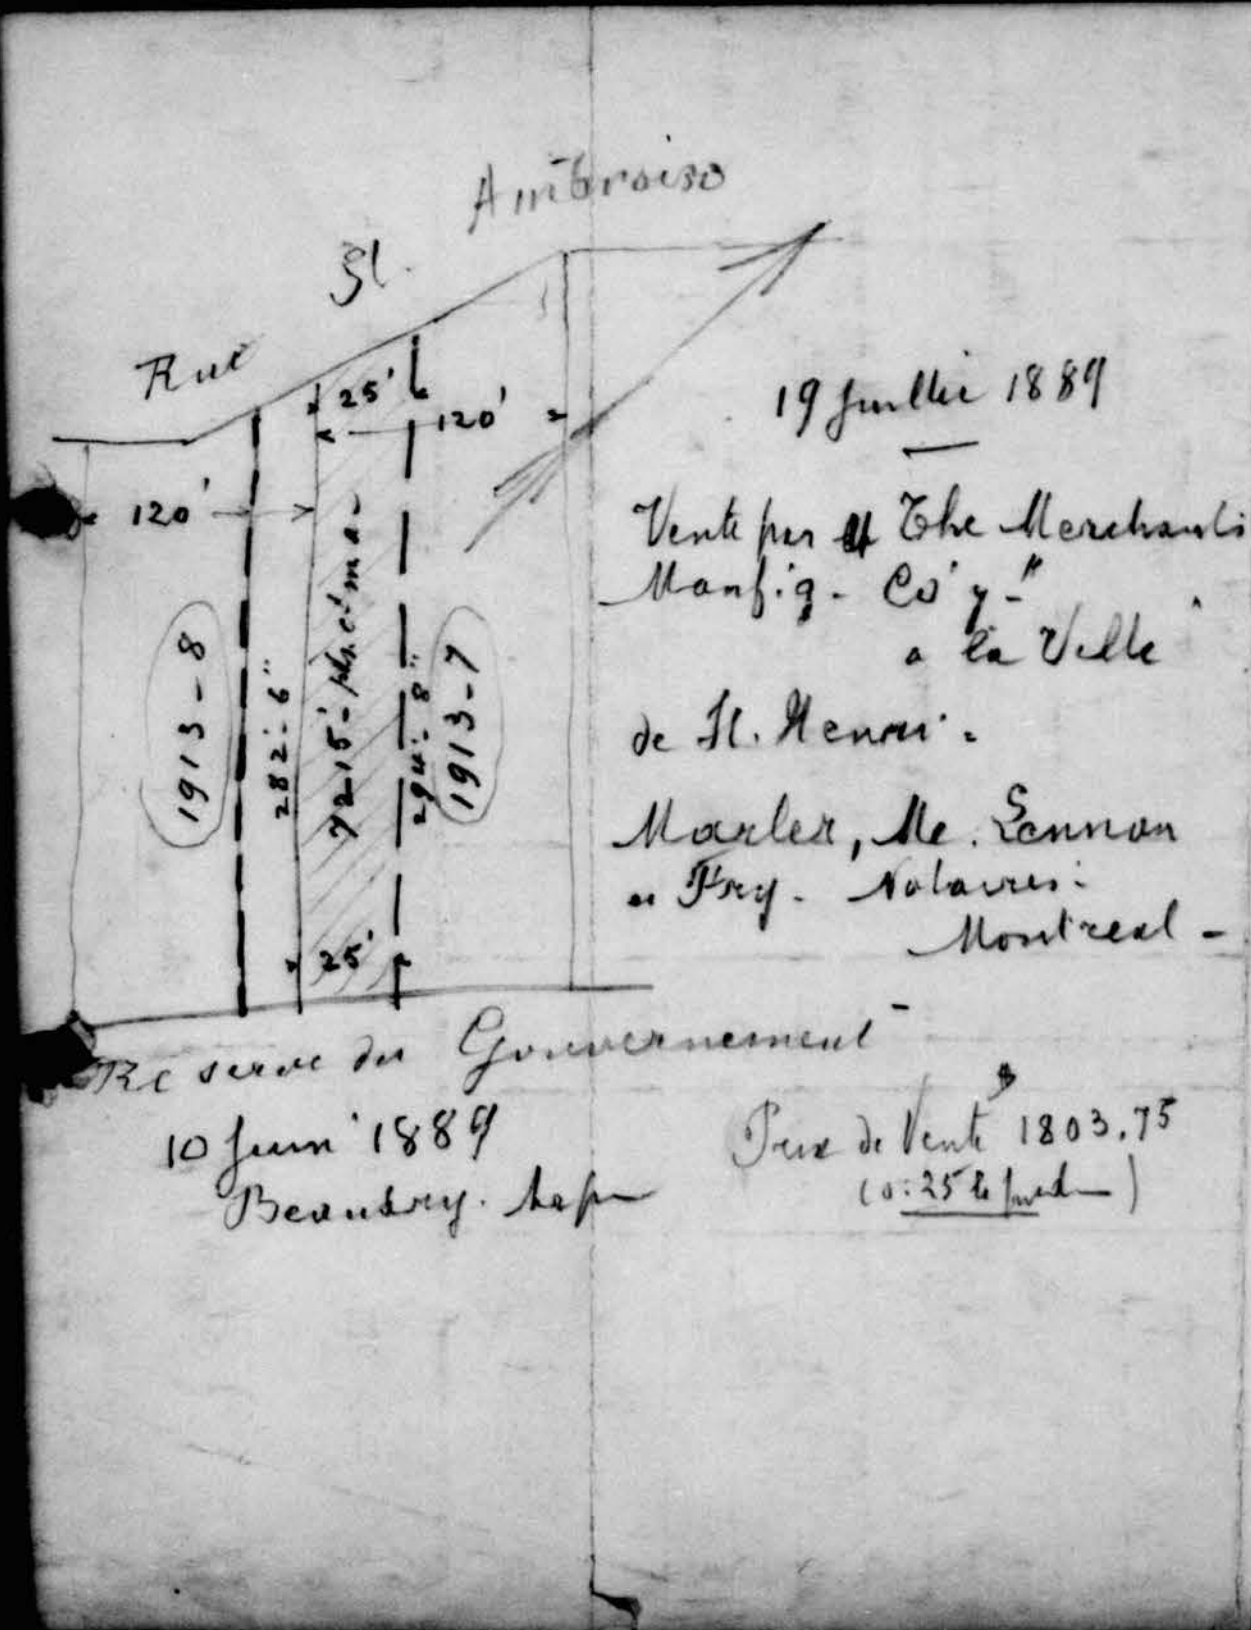 Rue St. Ambroise
25'
120'
120'
1913-8
282'-6"
7215'- plus ct m a-
294'-8"
1913-7
25'
Reserve du Gouvernement
10 Juin 1889
Beaudry.
19 Juillet 1889
Vente par "The Merchants
Manf.g- Co'y-"
a la Ville
de St. Henri-
Marler, Mc. Lennan
& Fry- Notaires-
Montreal-
Prix de Vente $ 1803.75
(0:25 le pied)